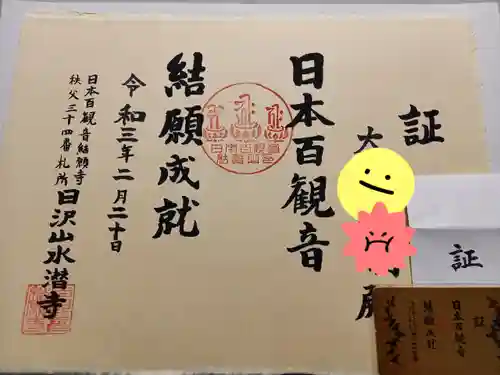 証
大
殿
日本百観音
結願成就
令和三年二月二十日
日本百観音結願寺
秩父三十四番札所
日沢山水潜寺
証
証
日本百観音
結願成就